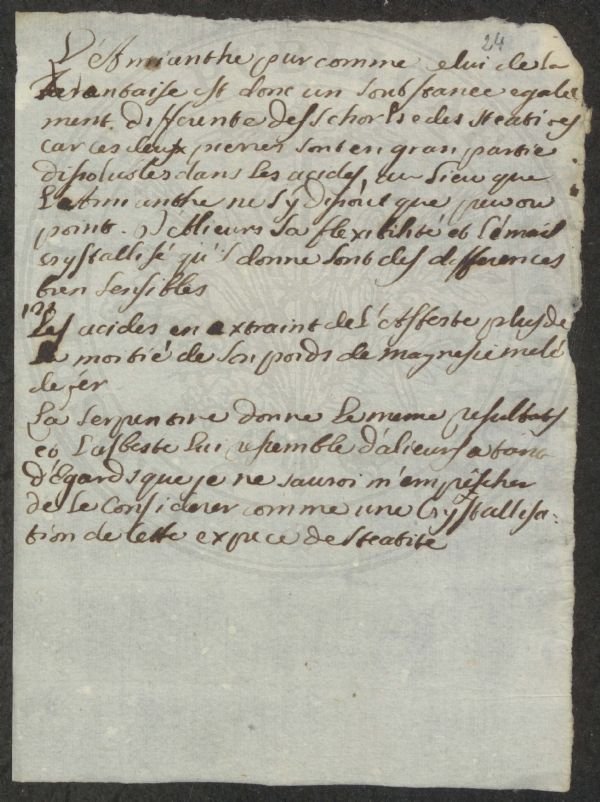 24
L'Amianthe pur comme celui de la
Tarantaise est donc un soubstance egale
ment differente des schorls et des steatites
car ces deux pierres sont en gran partie
dissolubles dans les acides, au lieu que
L'Amianthe ne s'y dissout que peu ou
point. D'allieurs sa flexibilité et l'émail
crystallisé qu'il donne sont des differences
bien sensibles
Les acides en extraint de L'Asbeste plus de
la moitié de son poids de magnesie melé
de fer
La serpentine donne le meme resultats
et L'asbeste lui resemble d'alieurs a tant
d'Egards que je ne sauroi m'empêscher
de le Considerer comme une Crystallisa=
tion de Cette espece de steatite